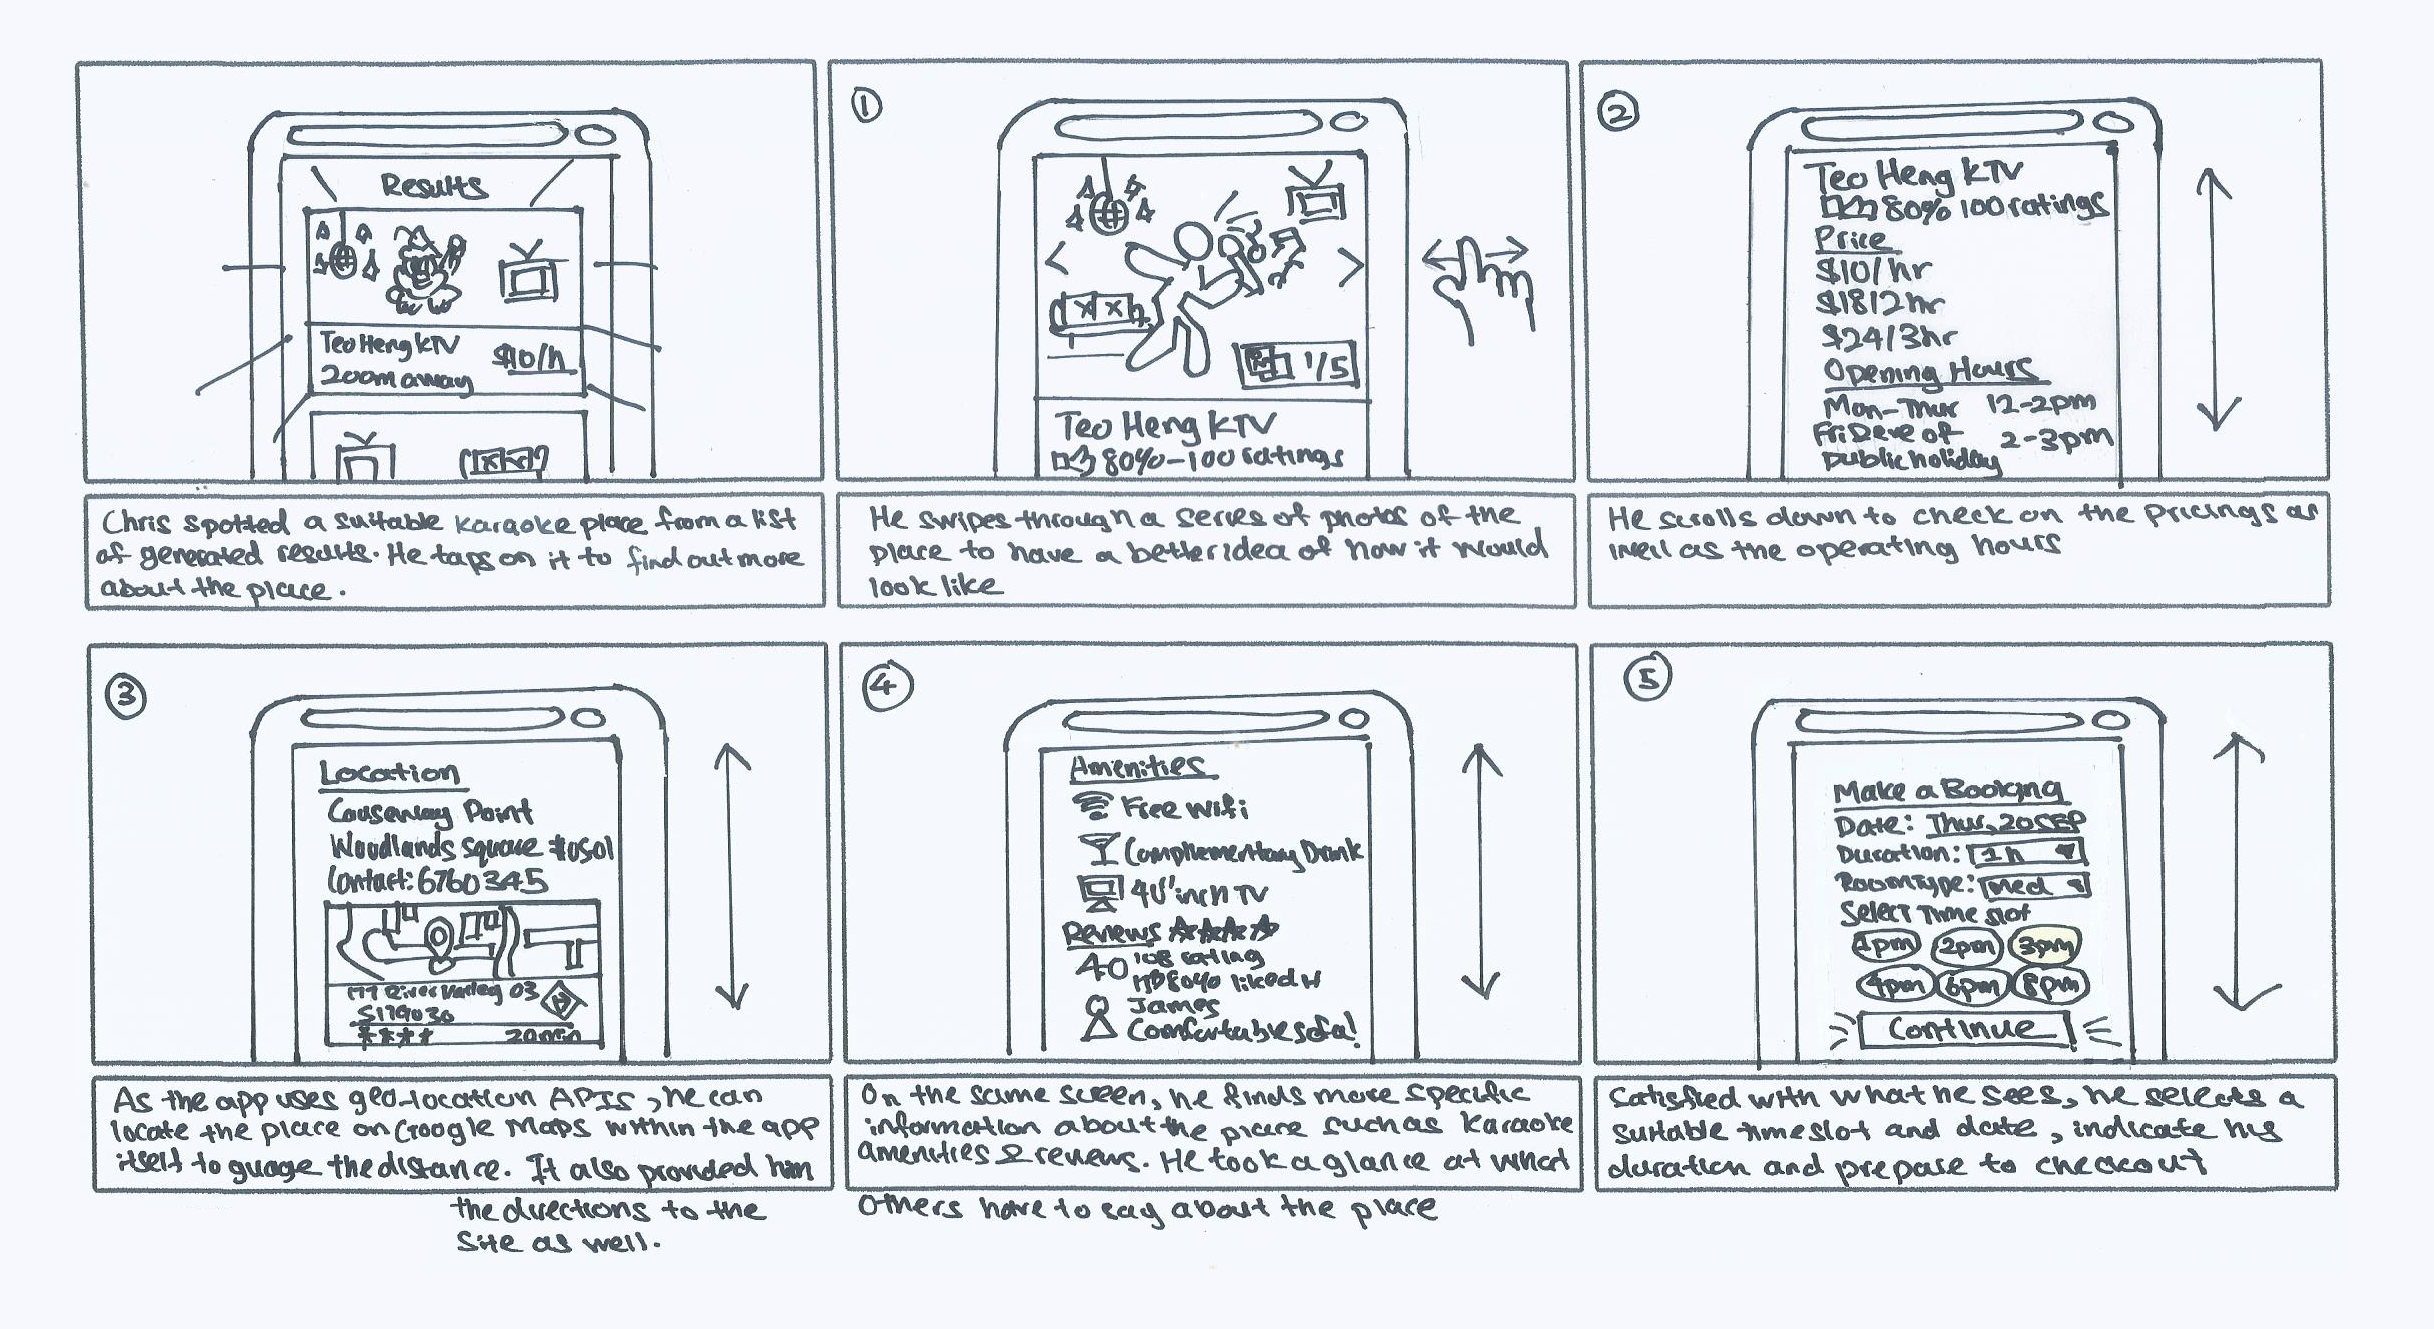 Results
Teo Heng KTV
$10/h
200m away
Chris spotted a suitable karaoke place from a list
of generated results. He taps on it to find out more
about the place.
1
1/5
Teo Heng KTV
80% - 100 ratings
He swipes through a series of photos of the
place to have a better idea of how it would
look like
2
Teo Heng KTV
80% 100 ratings
Price
$10/hr
$18/2hr
$24/3hr
Opening Hours
Mon-Thur 12-2pm
Fri & eve of 2-3pm
public holiday
He scrolls down to check on the pricings as
well as the operating hours
3
Location
Causeway Point
Woodlands square #0501
Contact: 6760345
River Valley 03
S179030
20min
As the app uses geo-location APIs, he can
locate the place on Google Maps within the app
itself to guage the distance. It also provided him
the directions to the
site as well.
4
Amenities
Free Wifi
Complementary Drink
40' inch TV
Reviews
4.0 108 rating
80% liked it
James
Comfortable sofa!
On the same screen, he finds more specific
information about the place such as Karaoke
amenities & reviews. He took a glance at what
Others have to say about the place
5
Make a Booking
Date: Thur, 20 SEP
Duration: 1h
Room type: Med
Select Time slot
1pm 2pm 3pm
4pm 6pm 8pm
Continue
Satisfied with what he sees, he selects a
suitable timeslot and date, indicate his
duration and prepare to checkout